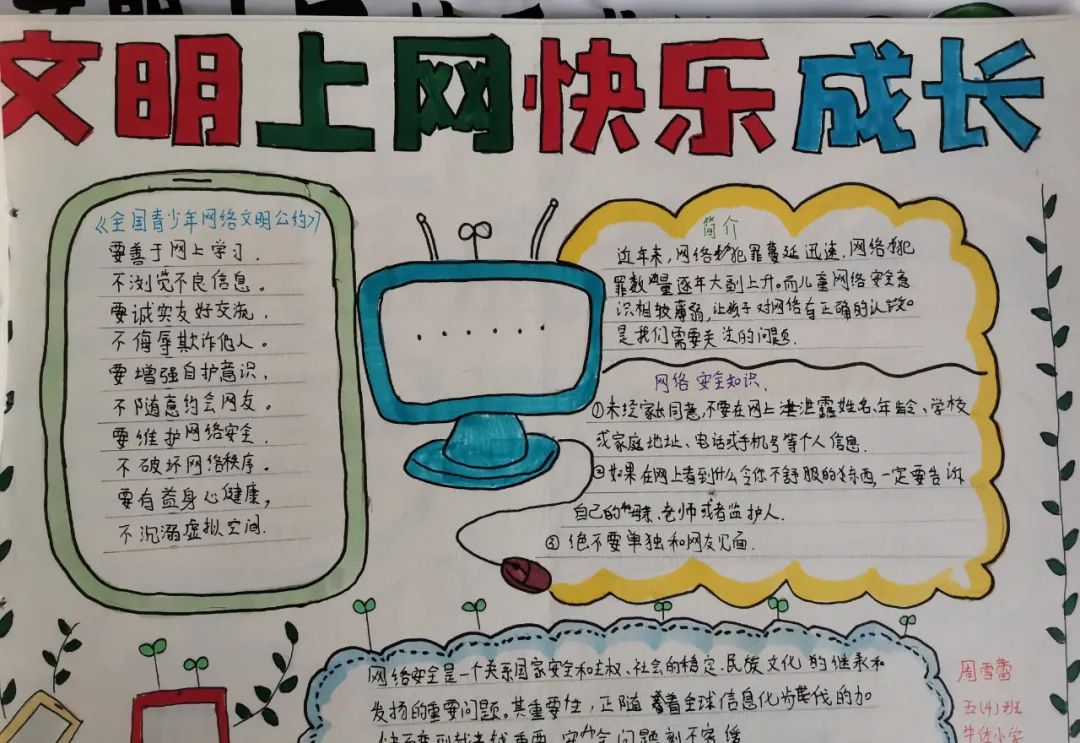 文明上网快乐成长
《全国青少年网络文明公约》
要善于网上学习.
不浏览不良信息。
要诚实友好交流,
不侮辱欺诈他人。
要增强自护意识,
不随意约会网友。
要维护网络安全.
不破坏网络秩序。
要有益身心健康,
不沉溺虚拟空间.
简介
近年来,网络犯罪蔓延迅速,网络犯
罪数量逐年大副上升。而儿童网络安全意
识相较薄弱,让孩子对网络有正确的认识。
是我们需要关注的问题.
网络安全知识.
①未经家长同意,不要在网上泄露姓名、年龄、学校
或家庭地址、电话或手机号等个人信息.
②如果在网上看到什么令你不舒服的东西,一定要告诉
自己的母亲、老师或者监护人.
③绝不要单独和网友见面.
网络安全是一个关系国家安全和主权、社会的稳定、民族文化的继承和
发扬的重要问题。其重要性,正随着全球信息化步伐的加
快而变到越来越重要,安全问题刻不容缓
周雪蕾
五(4)班